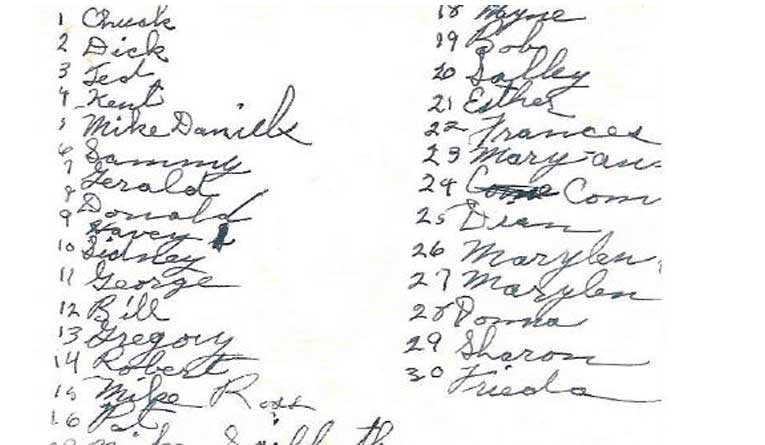 1 Chuck
2 Dick
3 Ted
4 Kent
5 Mike Daniels
6 Sammy
7 Gerald
8 Donald
9 Havey
10 Sidney
11 George
12 Bill
13 Gregory
14 Robert
15 Mike Ross
16 Pat
Mike
18 Myne
19 Bob
20 Salley
21 Esther
22 Frances
23 Mary-an
24 Com
25 Dian
26 Marylen
27 Marylen
28 Donna
29 Sharon
30 Frieda